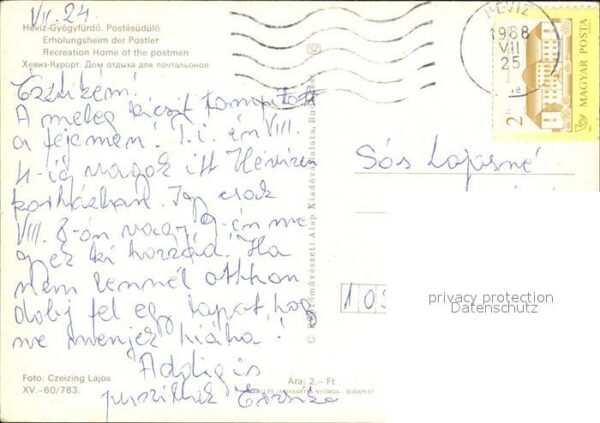 VII. 24.
Hévíz-Gyógyfürdő. Postásüdülő
Erholungsheim der Postler
Recreation Home of the postmen
Хевиз-Курорт. Дом отдыха для почтальонов
Esztikém!
A meleg kicsit
a fejemen! T.i. én VIII.
4-ig vagok itt Hévizen
korházban. Igy csak
VIII. 8-án vagy 9-én me
gyek ki hozzád. Ha
nem lennél otthon
dobj fel egy lapot, hog
ne menjek hiába!
Addig is
puszillak Erzsike
Foto: Czeizing Lajos
XV.-60/783.
Ára: 2.- Ft
Képzőművészeti Alap Kiadóvállalata, Budapest
HÉVÍZ
1988
VII
25
2 Ft
MAGYAR POSTA
Sós Lajosné
1 0 5
privacy protection
Datenschutz